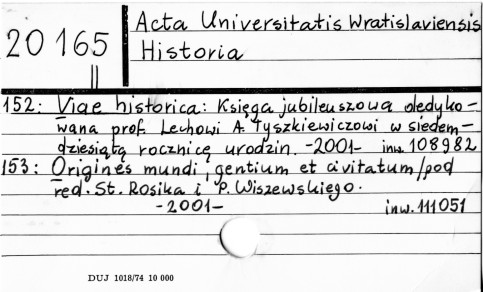 20165
||
Acta Universitatis Wratislaviensis
Historia
152: Viae historica: Księga jubileuszowa dedyko-
wana prof. Lechowi A. Tyszkiewiczowi w siedem-
dziesiątą rocznicę urodzin. -2001- inw. 108982
153: Origines mundi, gentium et civitatum/pod
red. St. Rosika i P. Wiszewskiego.
-2001- inw. 111051
DUJ 1018/74 10 000